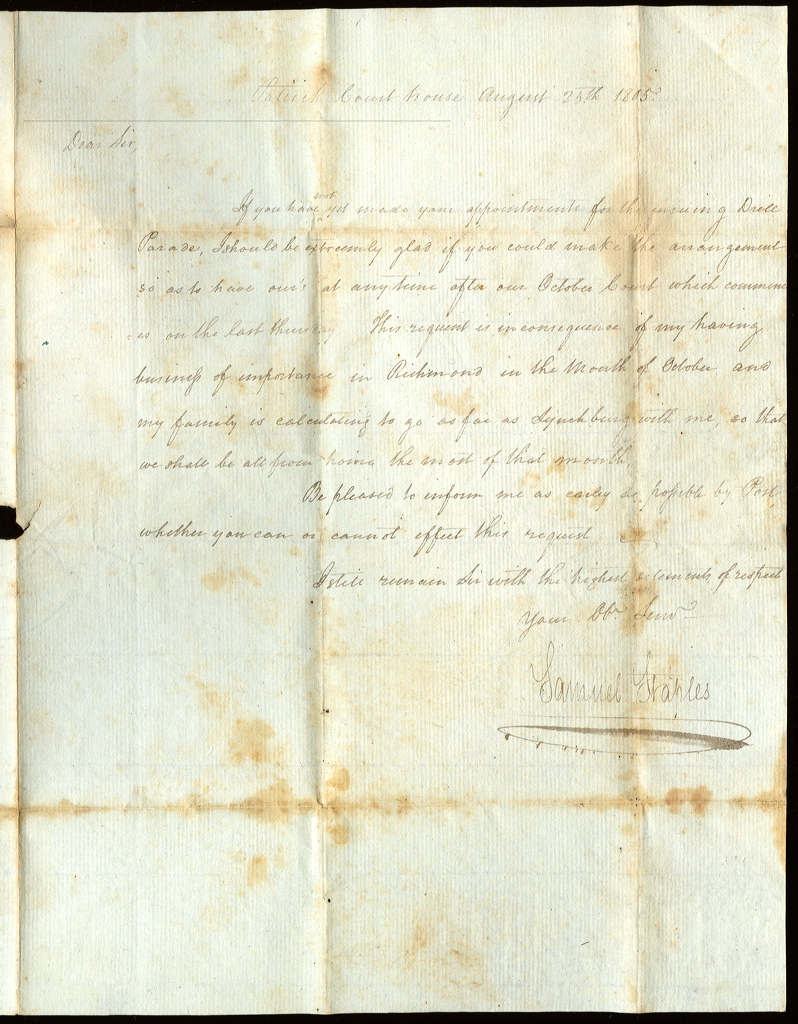 Patrick Court house August 25th 1805
Dear Sir,
not
If you have yet made your appointments for the ensuing Drill
Parade, I should be extreemly glad if you could make the arrangement
so as to have our's at any time after our October Court which commenc
=es on the last thursday This request is in consequence of my having
business of importance in Richmond in the Month of October, and
my family is calculating to go as far as Lynchburg with me, so that
we shall be all from home the most of that month.
Be pleased to inform me as early as possible by Post,
whether you can or cannot effect this request
I still remain Sir with the highest setements of respect
Your Obt. Servt.
Samuel Staples